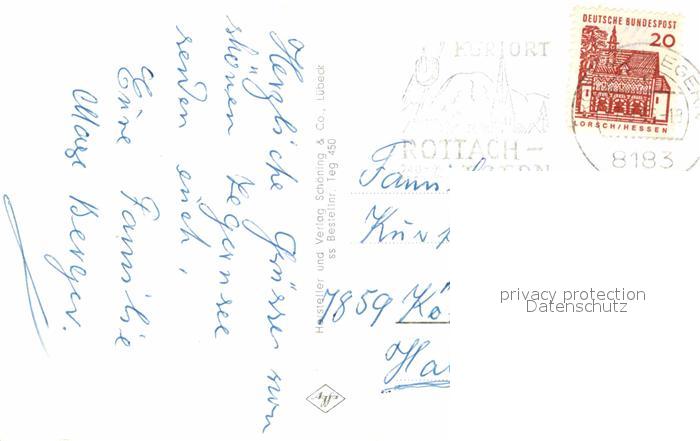 Herzliche Grüsse vom
schönen Tegernsee
senden euch,
Eure Familie
Berger.
Hersteller und Verlag Schöning & Co., Lübeck
ss Bestellnr. Teg 450
KURORT
ROTTACH-
DEUTSCHE BUNDESPOST
20
LORSCH/HESSEN
8183
Fam.
7859
privacy protection
Datenschutz